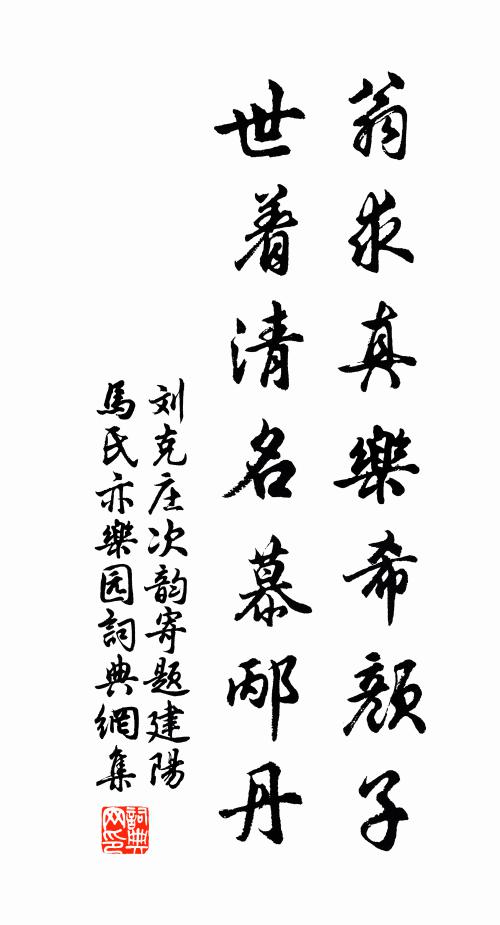 翁求真樂希顏子
世着清名慕邴丹
刘克庄次韵寄题建陽
馬氏亦樂园詞典網集
詞典
网印